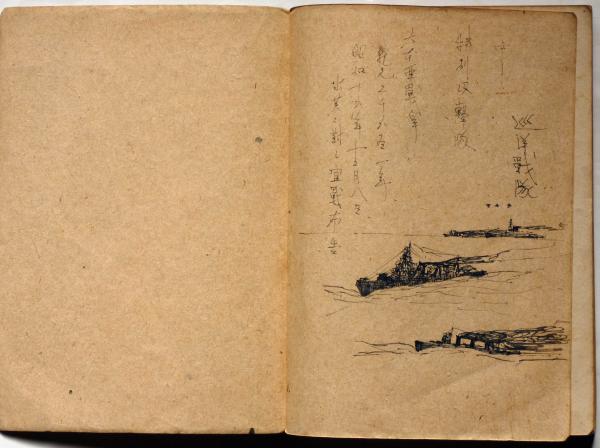 巡洋戰隊
特別攻撃隊
大東亜戰争
紀元二千六百一年
昭和十六年十二月八日
米英ニ對シ宣戰布告